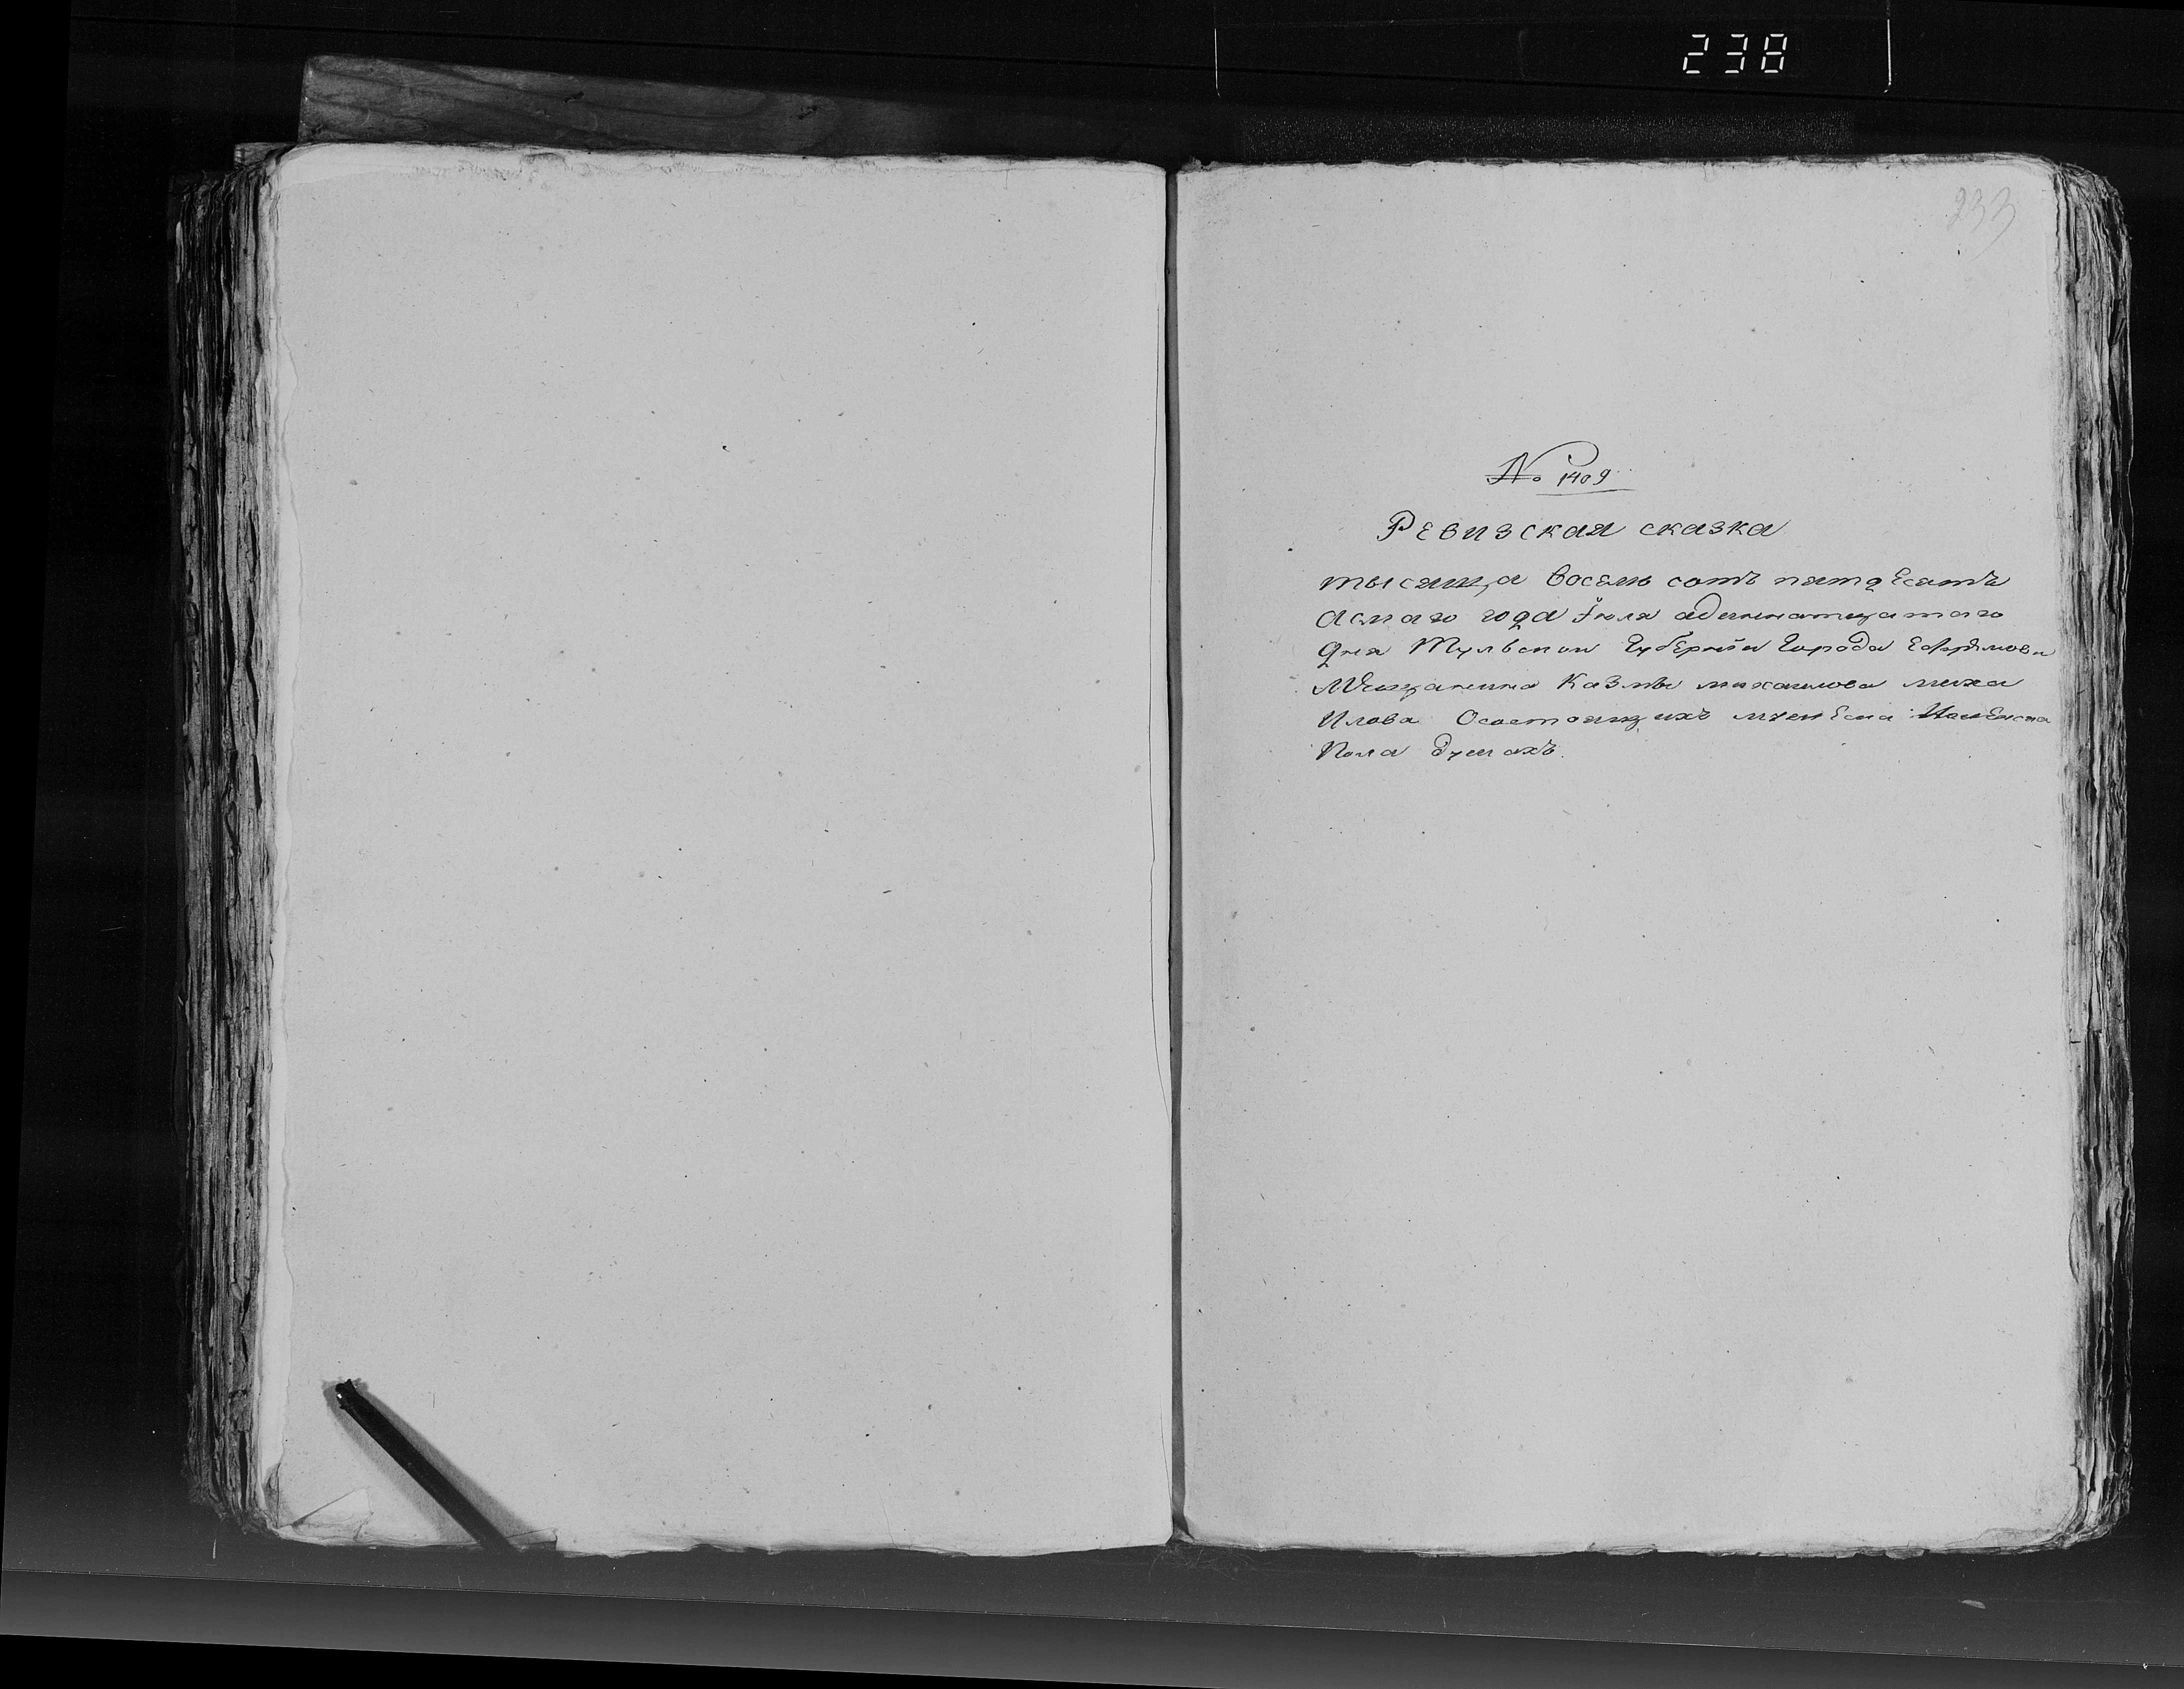 238
233
№ 1409
Ревизская сказка
тысяща восемь сотъ пятдесятъ
асмаго года Iюля адиннатцатаго
дня Тульскои Губернiи Города Ефрѣмова
Мещанина Казмы михаилова миха
илова Осостоящихъ мужеска Иженска
Пола душахъ.